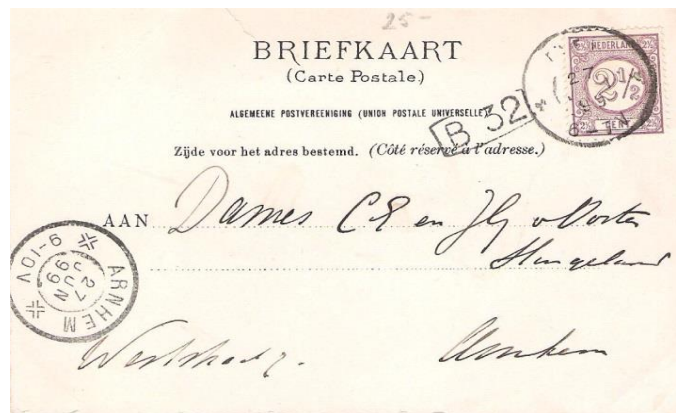 25-
BRIEFKAART
(Carte Postale.)
ALGEMEENE POSTVEREENIGING (UNION POSTALE UNIVERSELLE)
Zijde voor het adres bestemd. (Côté réservé à l'adresse.)
B 32
NEDERLAND
2½ 2½
2½
CENT
27
AAN Dames C E en J G v Oosten
Slingeland
Arnhem
ARNHEM
27
JUN
99
9-10V